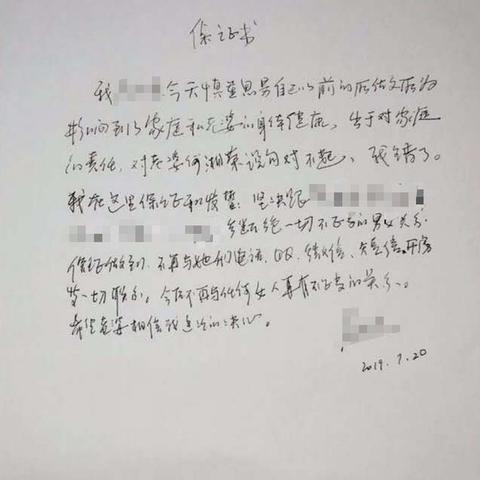 保证书
我 今天慎重思量自己以前的所做所为
影响到了家庭和老婆的身体健康，出于对家庭
的责任，对老婆何湘荣说句对不起，我错了。
我在这里保证和发誓：坚决跟
断绝一切不正当的男女关系.
保证做到，不再与她们电话、QQ、微信、短信、开房
等一切联系。今后不再与任何女人再有不正当的关系。
希望老婆相信我这次的决心。
2019.7.20